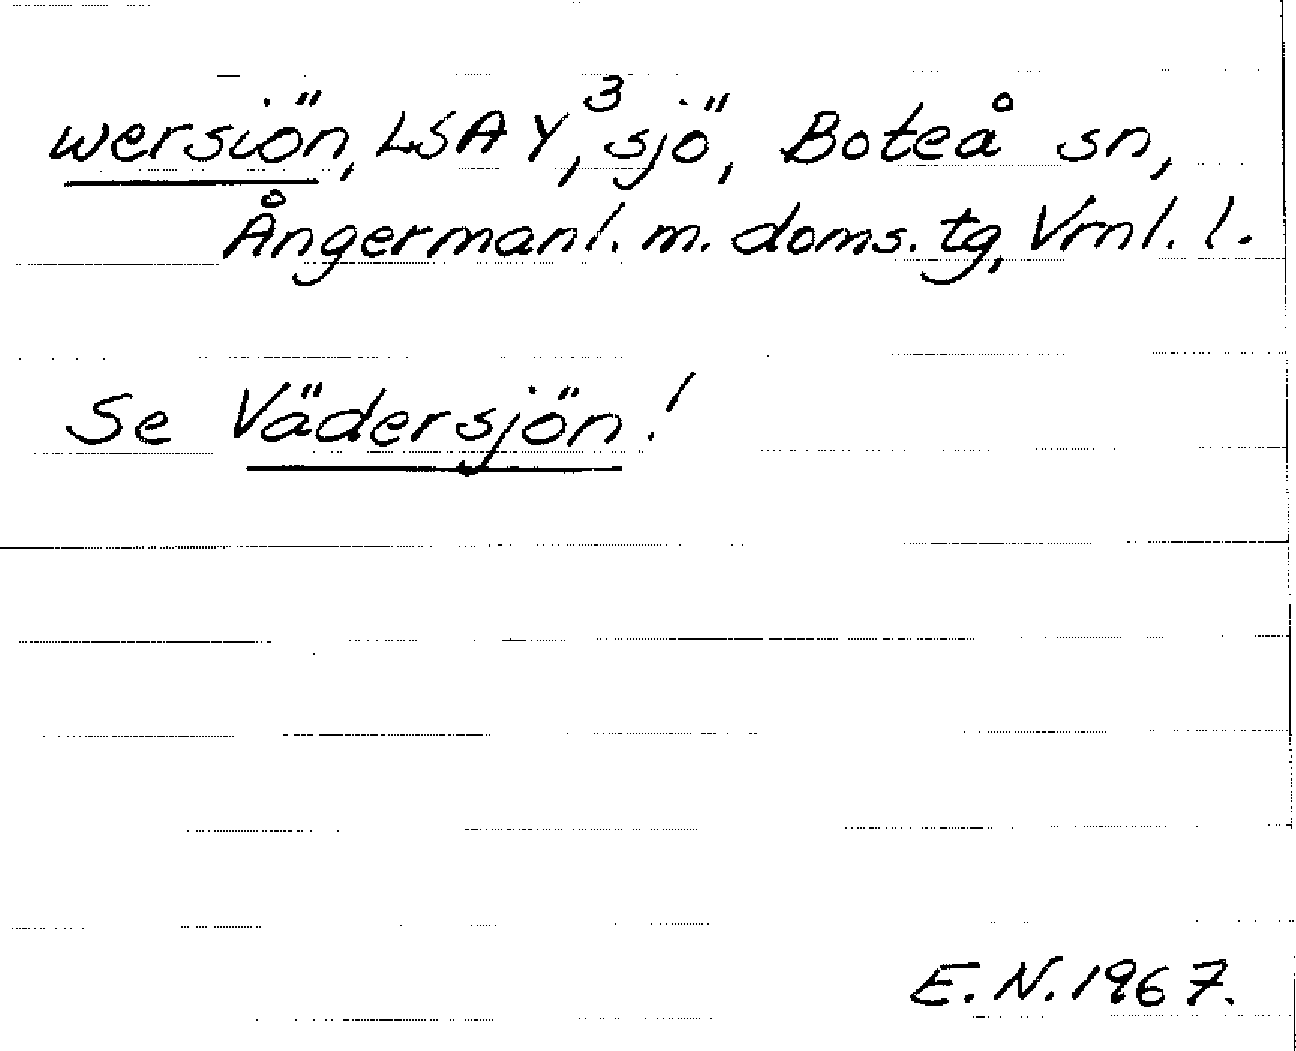 wersiön, LSA Y³, sjö, Boteå sn,
Ångermanl. m. doms. tg, Vrnl. l.
Se Vädersjön!
E. N. 1967.